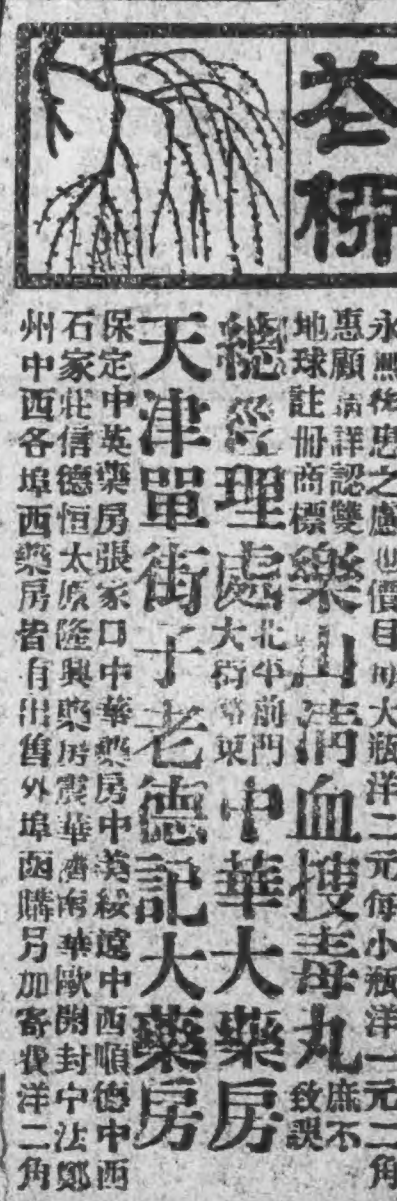 永無後患之慮 價目每大瓶洋二元每小瓶洋一元二角
惠顧請詳認雙
地球註冊商標
樂山清血搜毒丸
庶不
致誤
總經理處
北平前門
大街路東
中華大藥房
天津單街子老德記大藥房
保定中英藥房張家口中華藥房中英綏遠中西順德中西
石家莊信德恒太原隆興藥房震華濟南華歐開封中法鄭
州中西各埠西藥房皆有出售外埠函購另加寄費洋二角